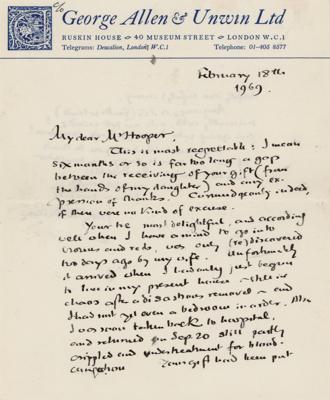 c/o
George Allen & Unwin Ltd
RUSKIN HOUSE · 40 MUSEUM STREET · LONDON W.C.1
Telegrams: Deucalion, London, W.C.1 Telephone: 01-405 8577
February 18th
1969.
My dear Mr Hooper,
This is most regrettable: I mean
six months or so is far too long a gap
between the receiving of your gift (from
the hands of my daughter) and any ex-
pression of thanks. Curmudgeonly indeed,
if there were no kind of excuse.
Your tie most delightful, and according
well when I have a mind to go into
browns and reds, was only (re)discovered
two days ago by my wife. Unfortunately
it arrived when I had only just begun
to live in my present house – still in
chaos after a disastrous removal – and
I had not yet even a bedroom in order. Also
I was soon taken back to hospital,
and returned on Sep. 20 still partly
crippled and under treatment for blood-
Your gift had been put